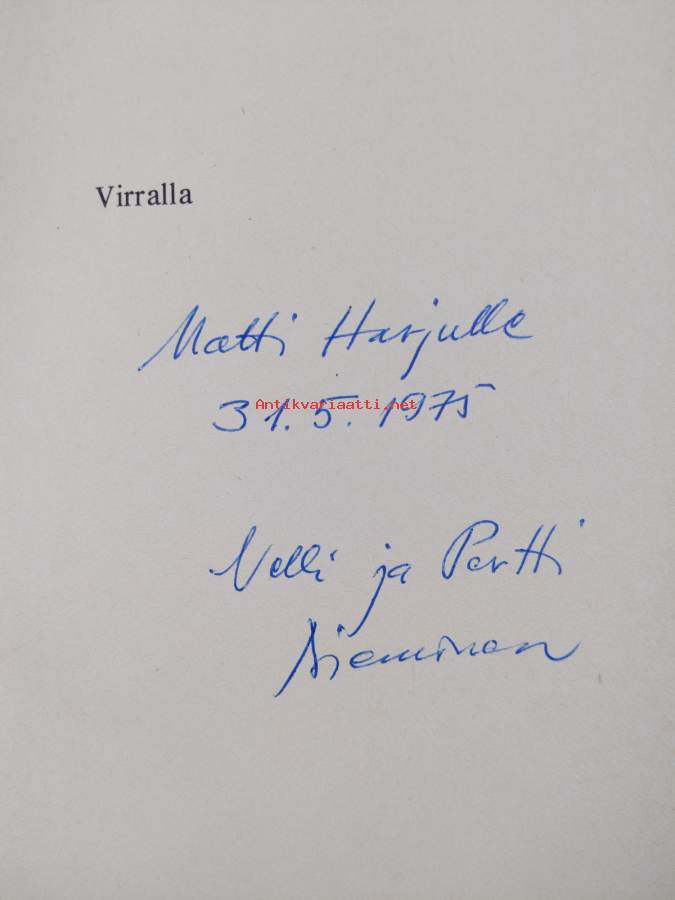 Virralla
Matti Harjulle
31.5.1975
Antikvariaatti.net
Nelli ja Pertti
Nieminen